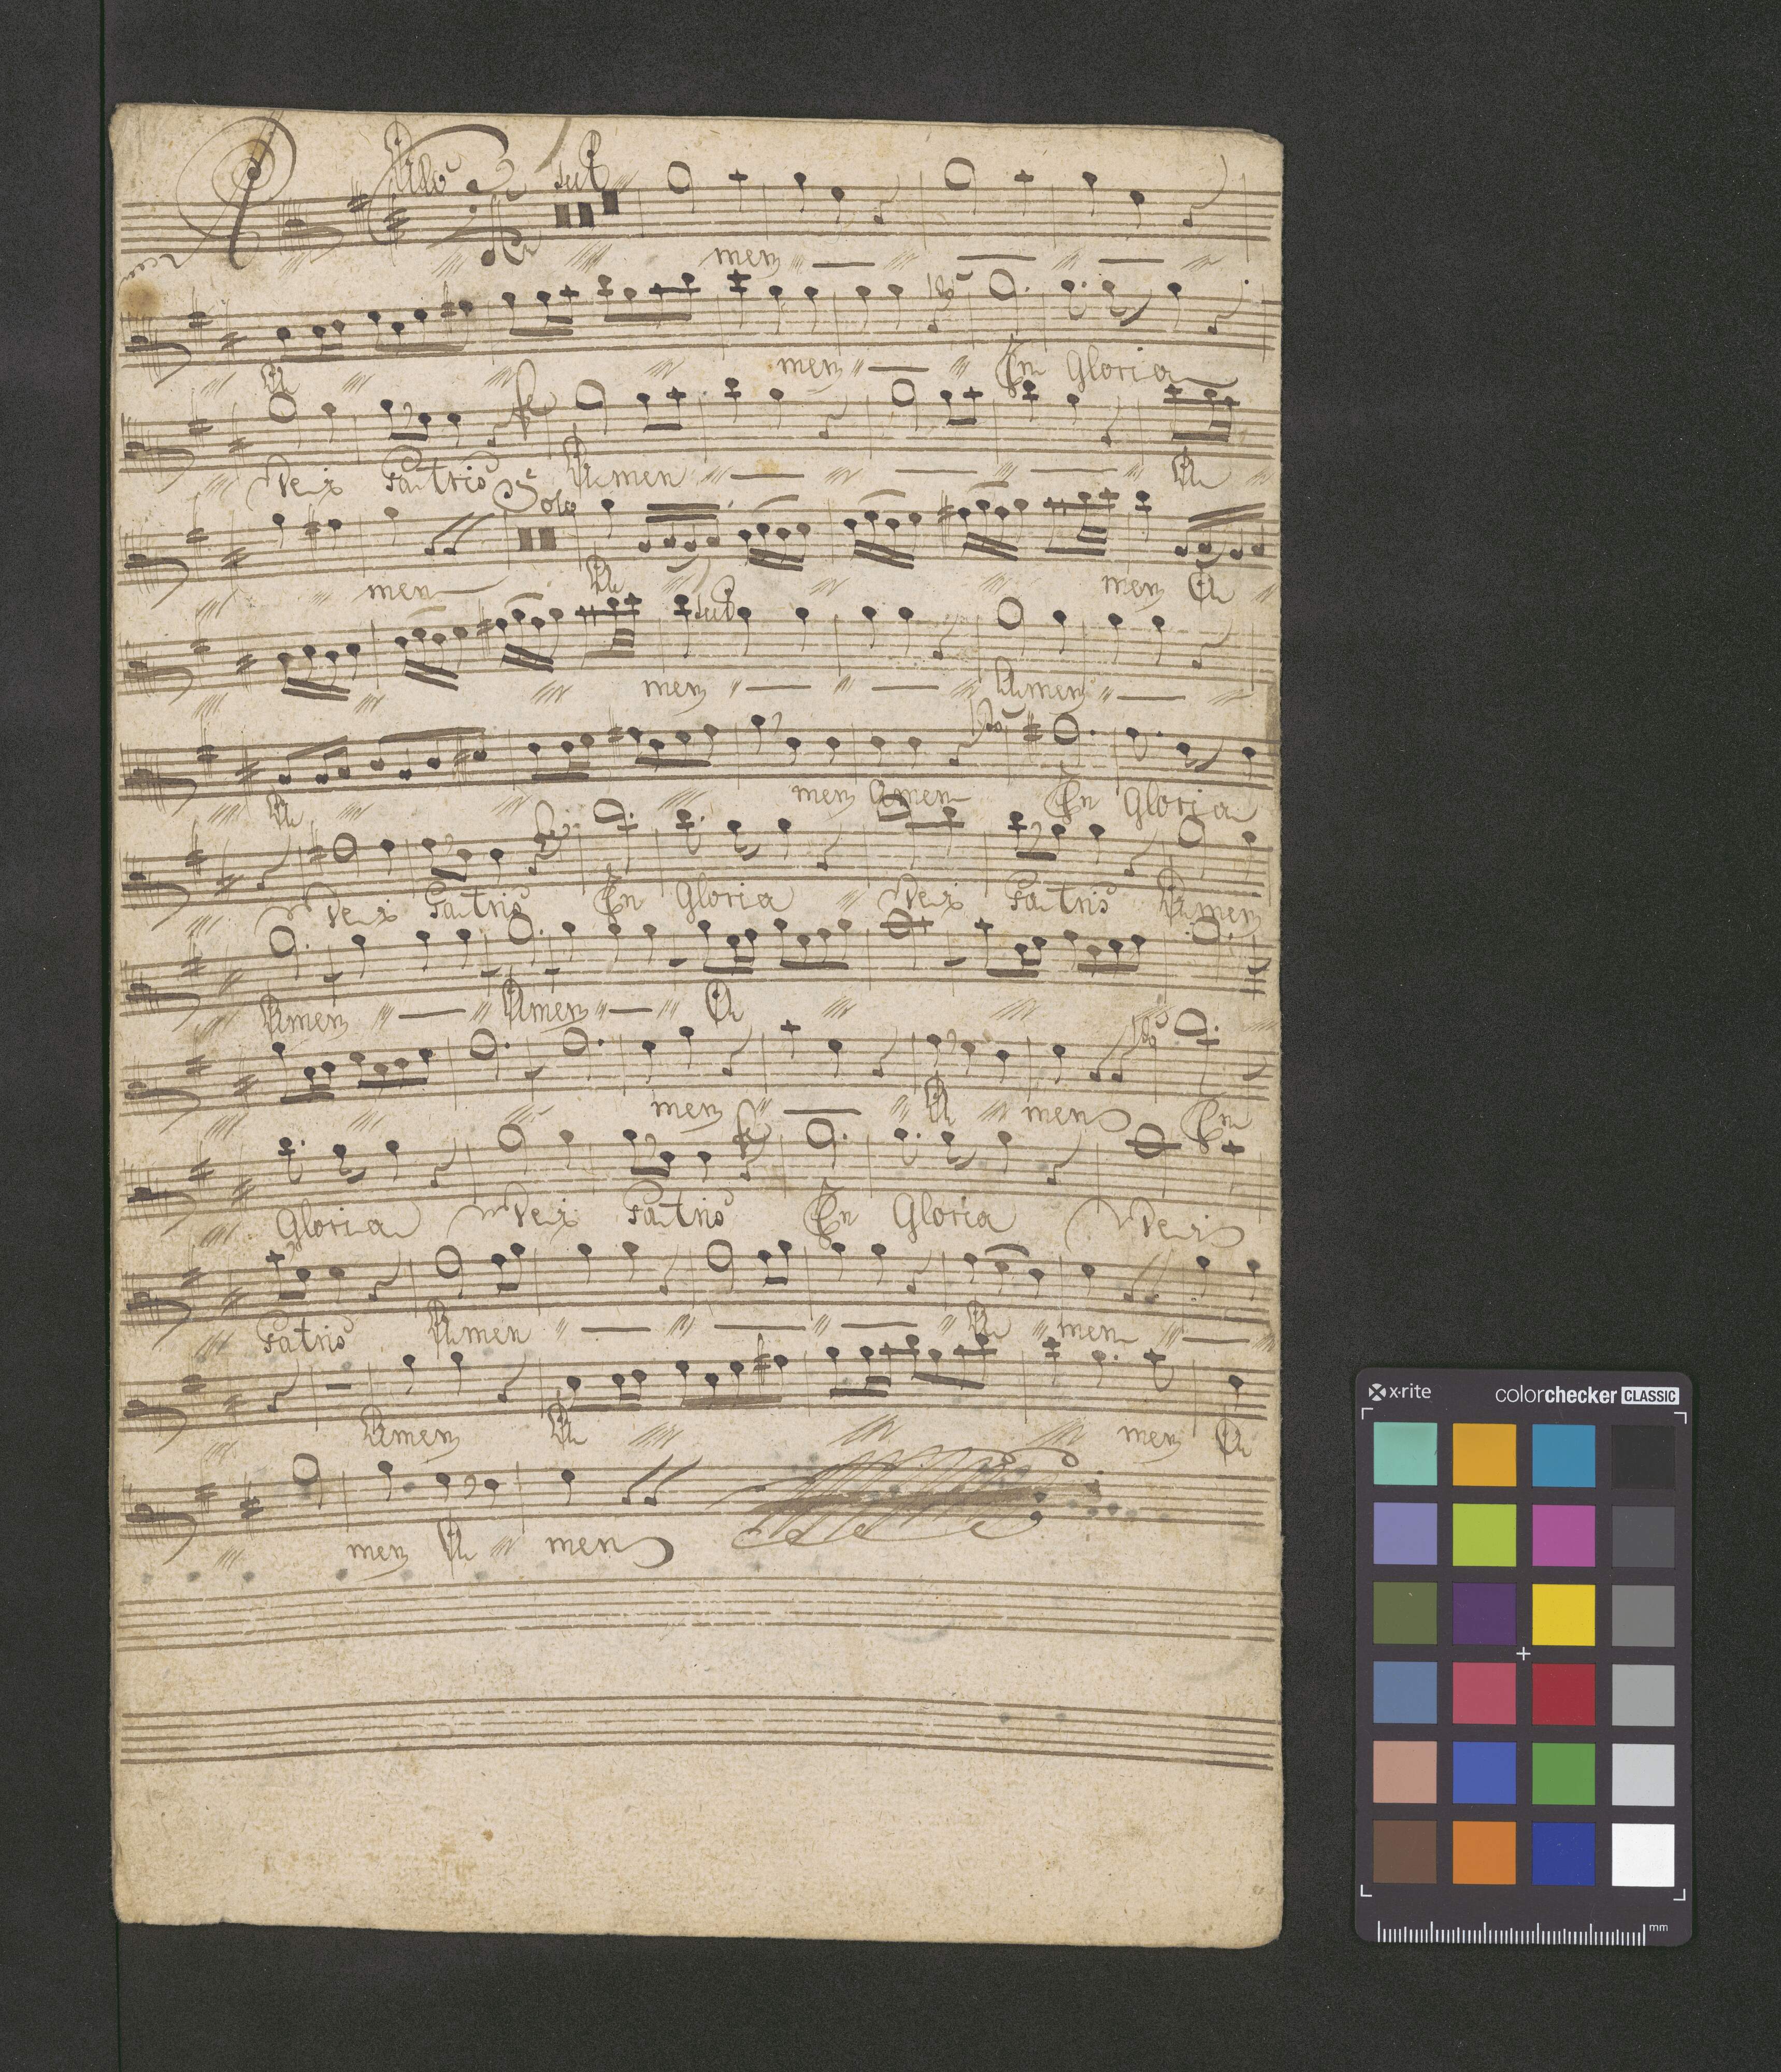 Allo tut
men
A men In Gloria
Dei Patris Amen A
Solo
men A men A
tut
men Amen
A men Amen In Gloria
Dei Patris In Gloria Dei Patris Amen
Amen Amen A
men A men In
Gloria Dei Patris In Gloria Dei
Patris Amen A men
Amen A men A
men A men
x-rite colorchecker CLASSIC
mm